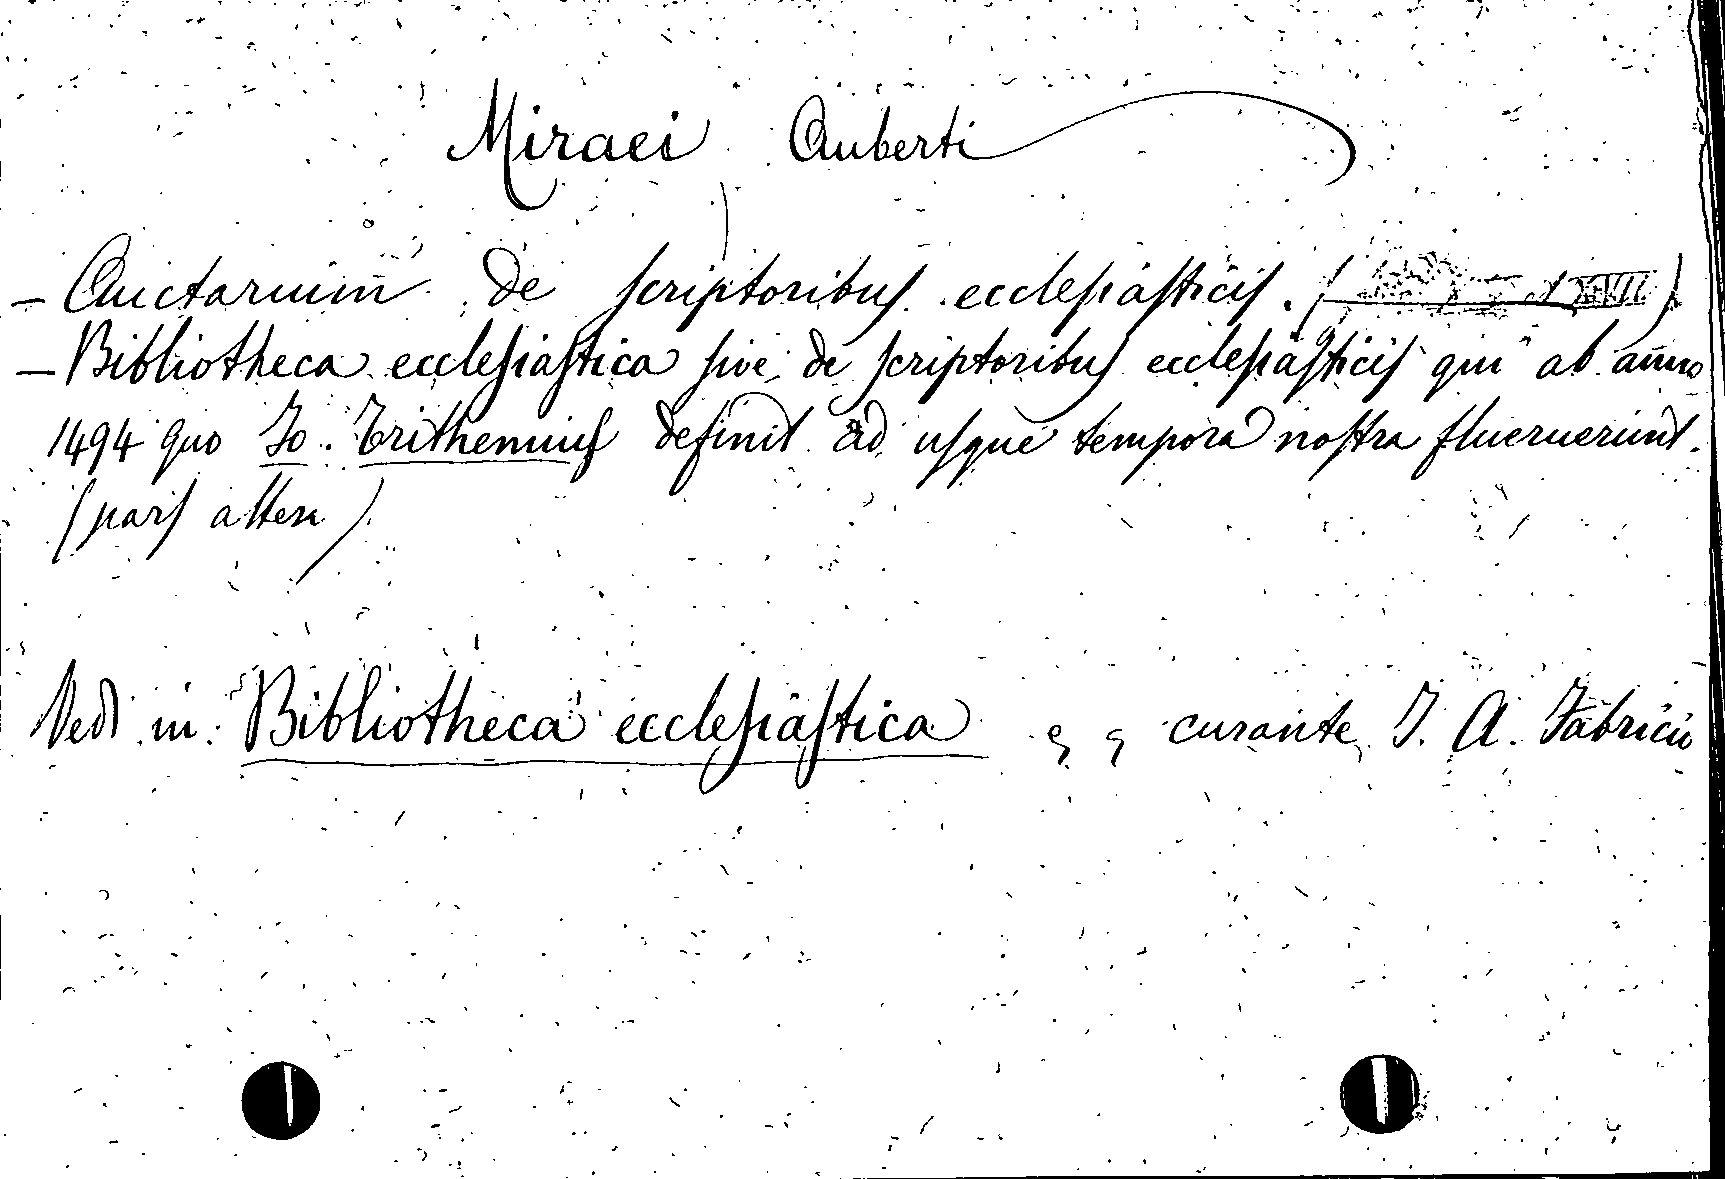 Miraei Auberti
- Auctarium de scriptoribus ecclesiasticis. ( )
- Bibliotheca ecclesiastica sive de scriptoribus ecclesiasticis qui ab anno
1494 quo Jo. Trithemius definit ad usque tempora nostra flueruerunt.
(pars altera)
Vedi in: Bibliotheca ecclesiastica curante J. A. Fabricio